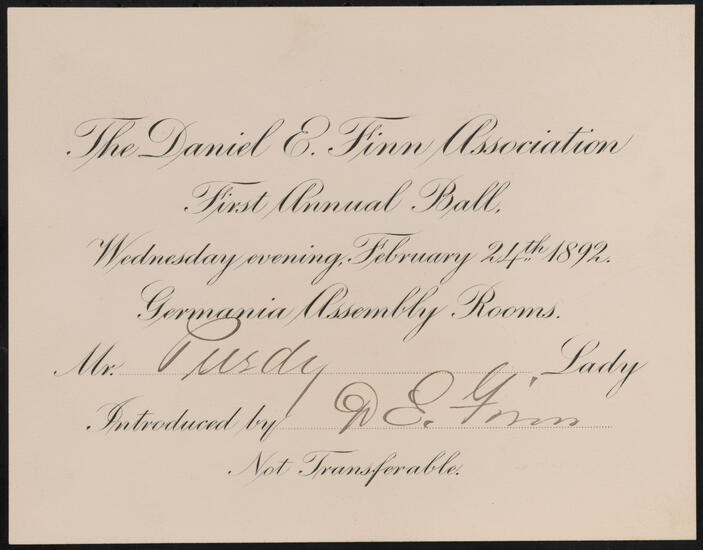 The Daniel E. Finn Association
First Annual Ball,
Wednesday evening, February 24th 1892.
Germania Assembly Rooms.
Mr. Purdy Lady
Introduced by D E. Finn
Not Transferable.